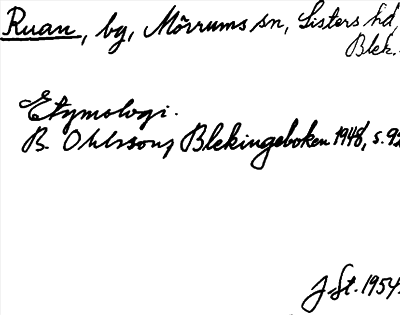 Ruan, by, Mörrums sn, Listers hd,
Blek.
Etymologi.
B. Ohlsson, Blekingeboken 1948, s. 92
J St. 1954.